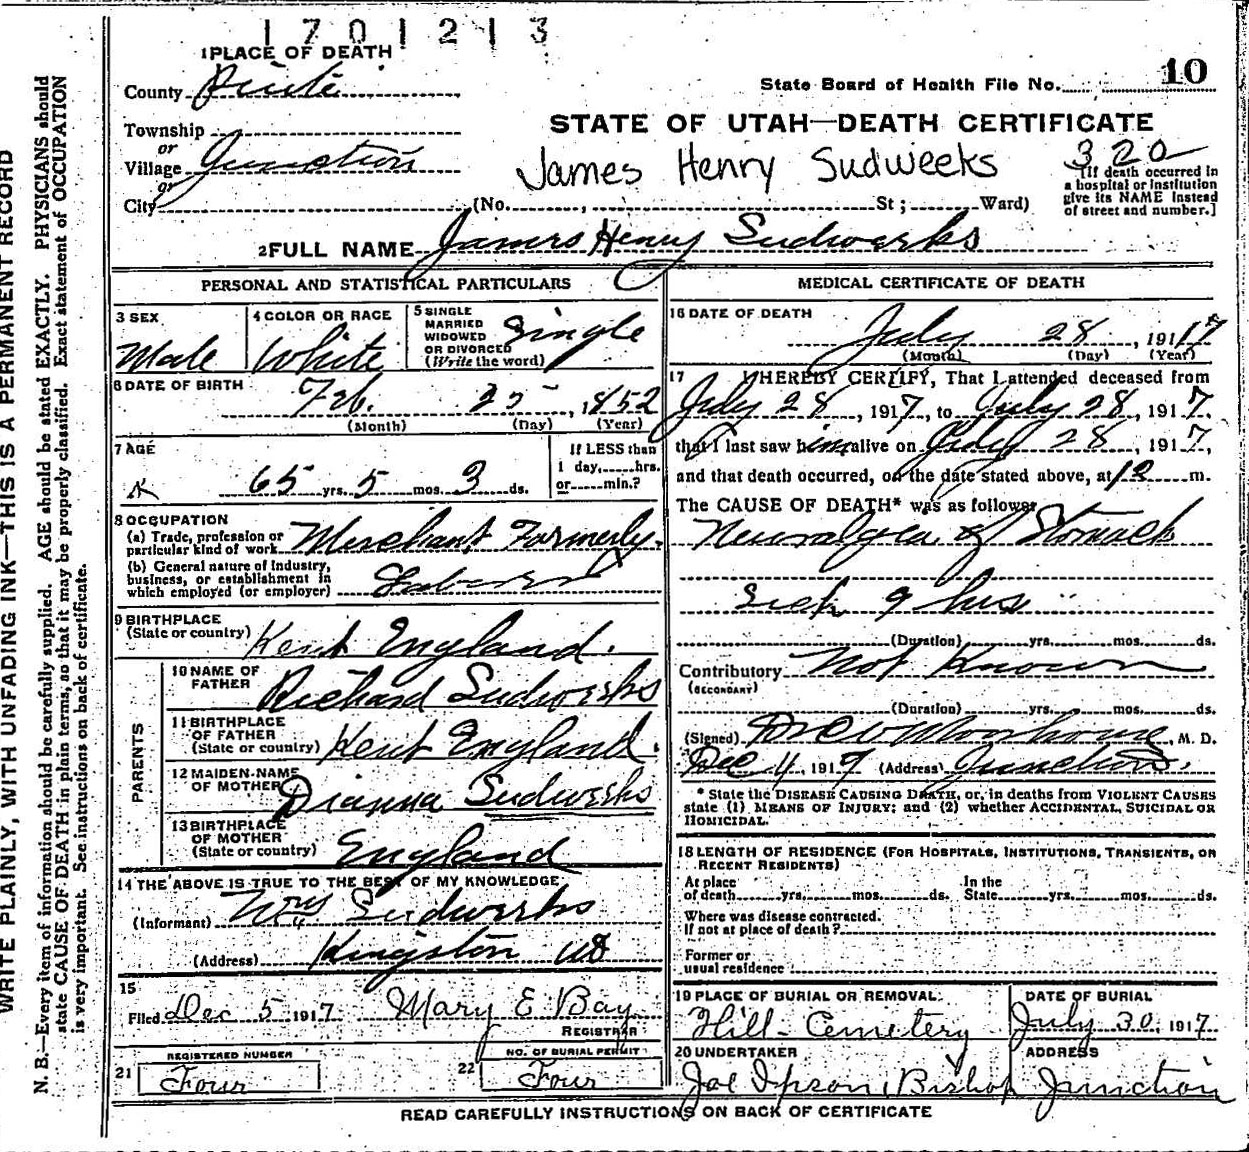 1701213
1 PLACE OF DEATH
County Piute
State Board of Health File No. 10
Township
or
Village Junction
or
City
STATE OF UTAH—DEATH CERTIFICATE
James Henry Sudweeks
320
(No. , St ; Ward)
[If death occurred in
a hospital or institution
give its NAME instead
of street and number.]
2 FULL NAME James Henry Sudweeks
PERSONAL AND STATISTICAL PARTICULARS
3 SEX
Male
4 COLOR OR RACE
White
5 SINGLE
MARRIED
WIDOWED
OR DIVORCED
(Write the word)
Single
6 DATE OF BIRTH
Feb. 25, 1852
(Month) (Day) (Year)
7 AGE
65 yrs. 5 mos. 3 ds.
If LESS than
1 day, hrs.
or min.?
8 OCCUPATION
(a) Trade, profession or
particular kind of work Merchant Formerly.
(b) General nature of Industry,
business, or establishment in
which employed (or employer) Laborer
9 BIRTHPLACE
(State or country) Kent England.
PARENTS
10 NAME OF
FATHER Richard Sudweeks
11 BIRTHPLACE
OF FATHER
(State or country) Kent England.
12 MAIDEN NAME
OF MOTHER Dianna Sudweeks
13 BIRTHPLACE
OF MOTHER
(State or country) England
14 THE ABOVE IS TRUE TO THE BEST OF MY KNOWLEDGE
(Informant) Sudweeks
(Address) Kingston
15
Filed Dec 5 1917 Mary E Bay
REGISTRAR
REGISTERED NUMBER
21 Four
NO. OF BURIAL PERMIT
22 Four
MEDICAL CERTIFICATE OF DEATH
16 DATE OF DEATH
July 28, 1917
(Month) (Day) (Year)
17 I HEREBY CERTIFY, That I attended deceased from
July 28, 1917, to July 28, 1917.
that I last saw him alive on July 28, 1917,
and that death occurred, on the date stated above, at 12 m.
The CAUSE OF DEATH* was as follows
Neuralgea of Stomach
Sick 9 hrs
(Duration) yrs. mos. ds.
Contributory Not Known
(SECONDARY)
(Duration) yrs. mos. ds.
(Signed) Moorhouse, M. D.
Dec 4, 1917 (Address) Junction.
* State the DISEASE CAUSING DEATH, or, in deaths from VIOLENT CAUSES
state (1) MEANS OF INJURY; and (2) whether ACCIDENTAL, SUICIDAL OR
HOMICIDAL.
18 LENGTH OF RESIDENCE (FOR HOSPITALS, INSTITUTIONS, TRANSIENTS, OR
RECENT RESIDENTS)
At place
of death yrs. mos. ds.
In the
State yrs. mos. ds.
Where was disease contracted.
If not at place of death?
Former or
usual residence
19 PLACE OF BURIAL OR REMOVAL
Hill Cemetery
DATE OF BURIAL
July 30, 1917
20 UNDERTAKER
Joe Ipson, Bishop
ADDRESS
Junction
READ CAREFULLY INSTRUCTIONS ON BACK OF CERTIFICATE
WRITE PLAINLY, WITH UNFADING INK—THIS IS A PERMANENT RECORD
N. B.—Every item of information should be carefully supplied. AGE should be stated EXACTLY. PHYSICIANS should
state CAUSE OF DEATH in plain terms, so that it may be properly classified. Exact statement of OCCUPATION
is very important. See instructions on back of certificate.